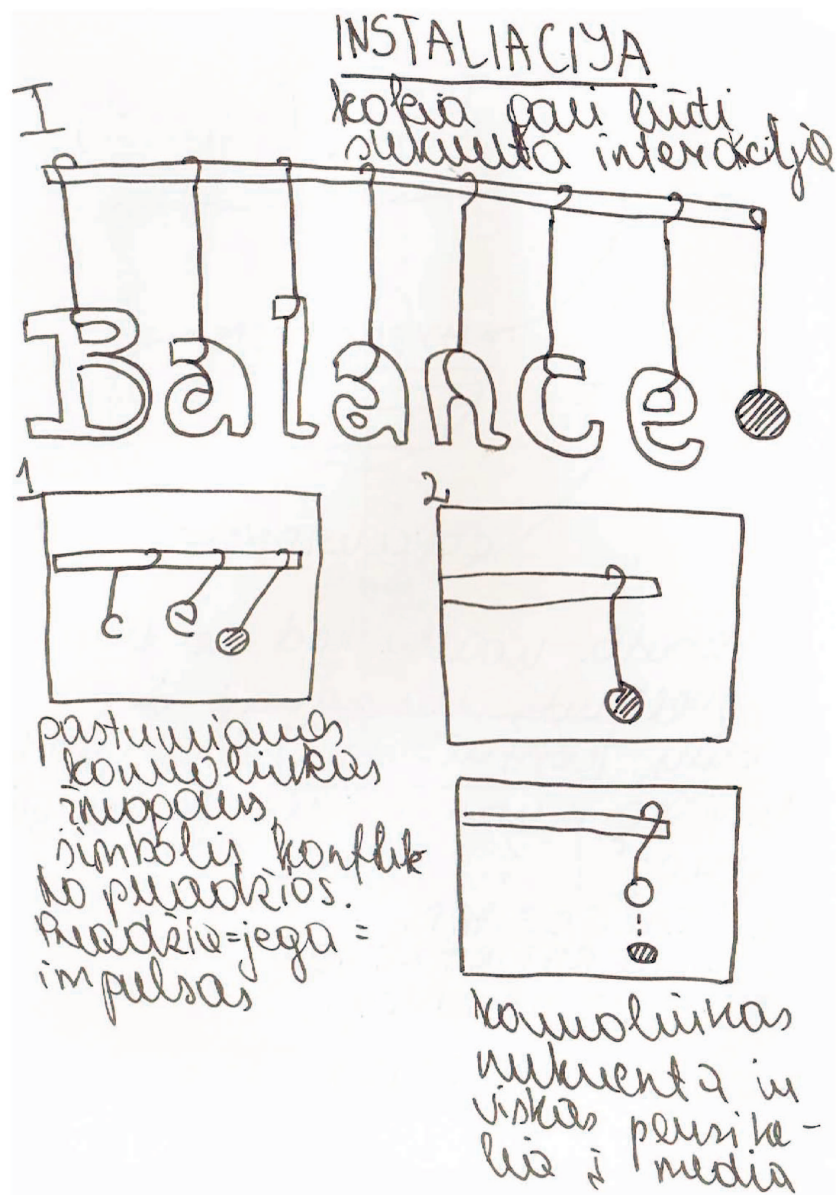 INSTALIACIJA
I
kokia gali būti
sukurta interakcija
Balance
1
c e
pastumiamas
kamoliukas
žmogaus,
simbolis konflik
to pradžios.
Pradžia=jega =
impulsas
2
kamoliukas
nukrenta ir
viskas persike-
lia į media